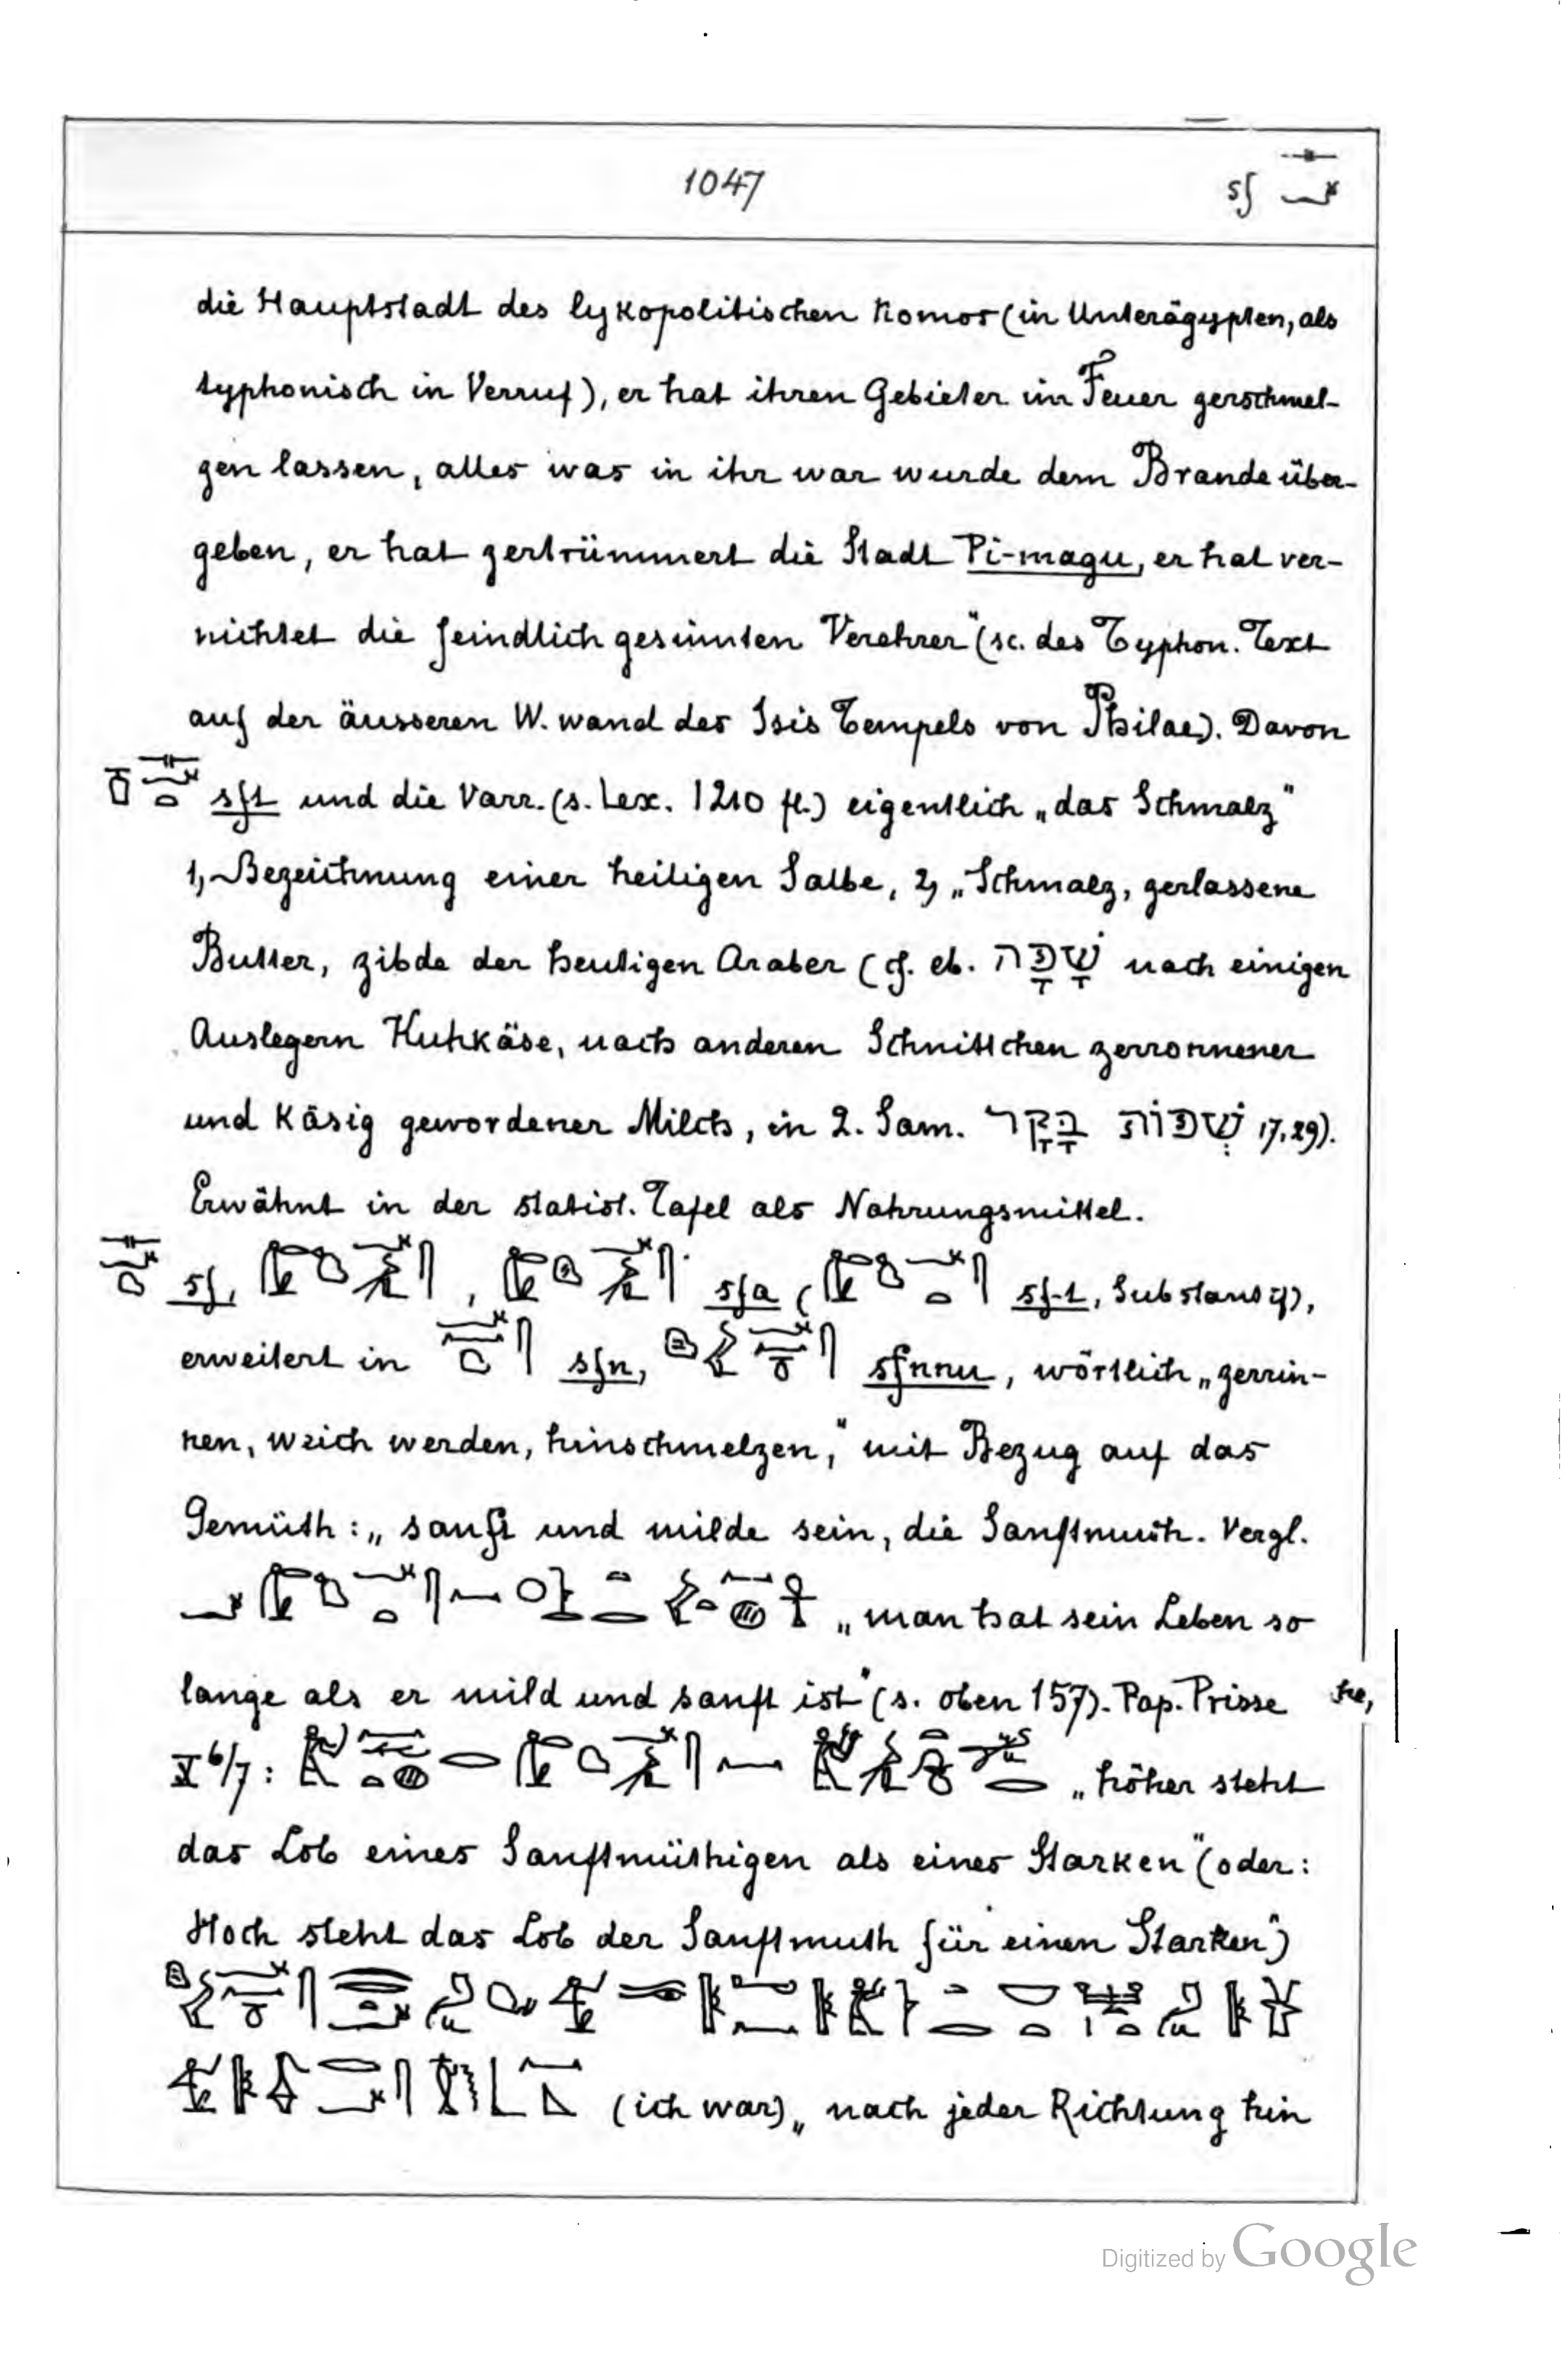 1047
sf
die Hauptstadt des lykopolitischen Nomos (in Unterägypten, als
typhonisch in Verruf), er hat ihren Gebieter im Feuer zerschmel-
zen lassen, alles was in ihr war wurde dem Brande über-
geben, er hat zertrümmert die Stadt Pi-magu, er hat ver-
nichtet die feindlich gesinnten Verehrer" (sc. des Typhon. Text
auf der äusseren W. wand des Isis Tempels von Philae). Davon
sft und die Varr. (s. Lex. 1210 fl.) eigentlich „das Schmalz"
1, Bezeichnung einer heiligen Salbe, 2, „Schmalz, zerlassene
Butter, zibde der heutigen Araber (cf. eb. שָׁפָה nach einigen
Auslegern Kuhkäse, nach anderen Schnittchen zerronnener
und käsig gewordener Milch, in 2. Sam. שְׁפוֹת בָּקָר 17,29).
Erwähnt in der statist. Tafel als Nahrungsmittel.
sf, , sfa ( sf-t, Substantif),
erweitert in sfn, sfnnu, wörtlich „zerrin-
nen, weich werden, hinschmelzen," mit Bezug auf das
Gemüth: „sanft und milde sein, die Sanftmuth. Vergl.
„man hat sein Leben so
lange als er mild und sanft ist" (s. oben 157). Pap. Prisse
X 6/7: „höher steht
das Lob eines Sanftmüthigen als eines Starken" (oder:
Hoch steht das Lob der Sanftmuth für einen Starken")
(ich war) „nach jeder Richtung hin
Digitized by Google